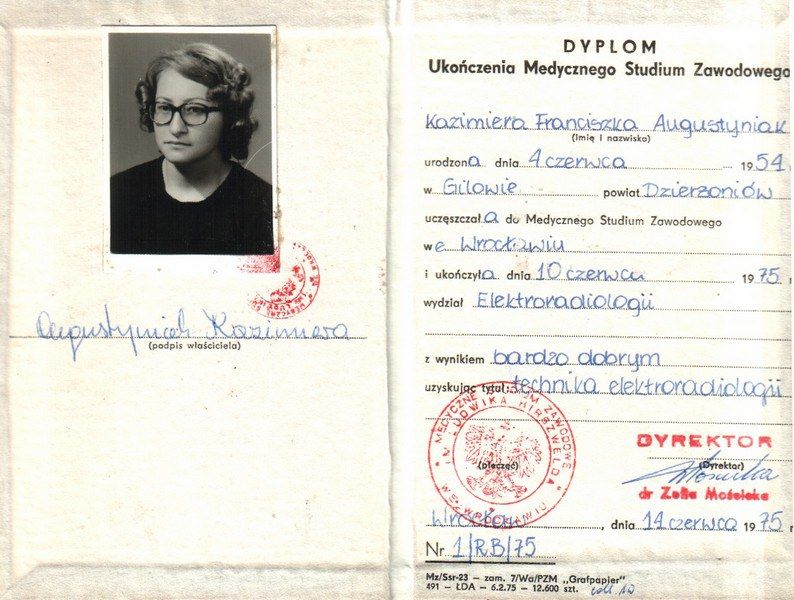 Augustyniak Kazimiera
(podpis właściciela)
DYPLOM
Ukończenia Medycznego Studium Zawodowego
Kazimiera Franciszka Augustyniak
(imię i nazwisko)
urodzona dnia 4 czerwca 1954
w Gilowie powiat Dzierżoniów
uczęszczała do Medycznego Studium Zawodowego
we Wrocławiu
i ukończyła dnia 10 czerwca 1975
wydział Elektroradiologii
z wynikiem bardzo dobrym
uzyskując tytuł: technika elektroradiologii
MEDYCZNE STUDIUM ZAWODOWE
IM. LUDWIKA HIRSZFELDA
WE WROCŁAWIU
(pieczęć)
DYREKTOR
(Dyrektor)
dr Zofia Mościcka
Wrocław, dnia 14 czerwca 1975
Nr 1/RB/75
Mz/Ssr-23 – zam. 7/Wa/PZM „Grafpapier"
491 – ŁDA – 6.2.75 – 12.600 szt.